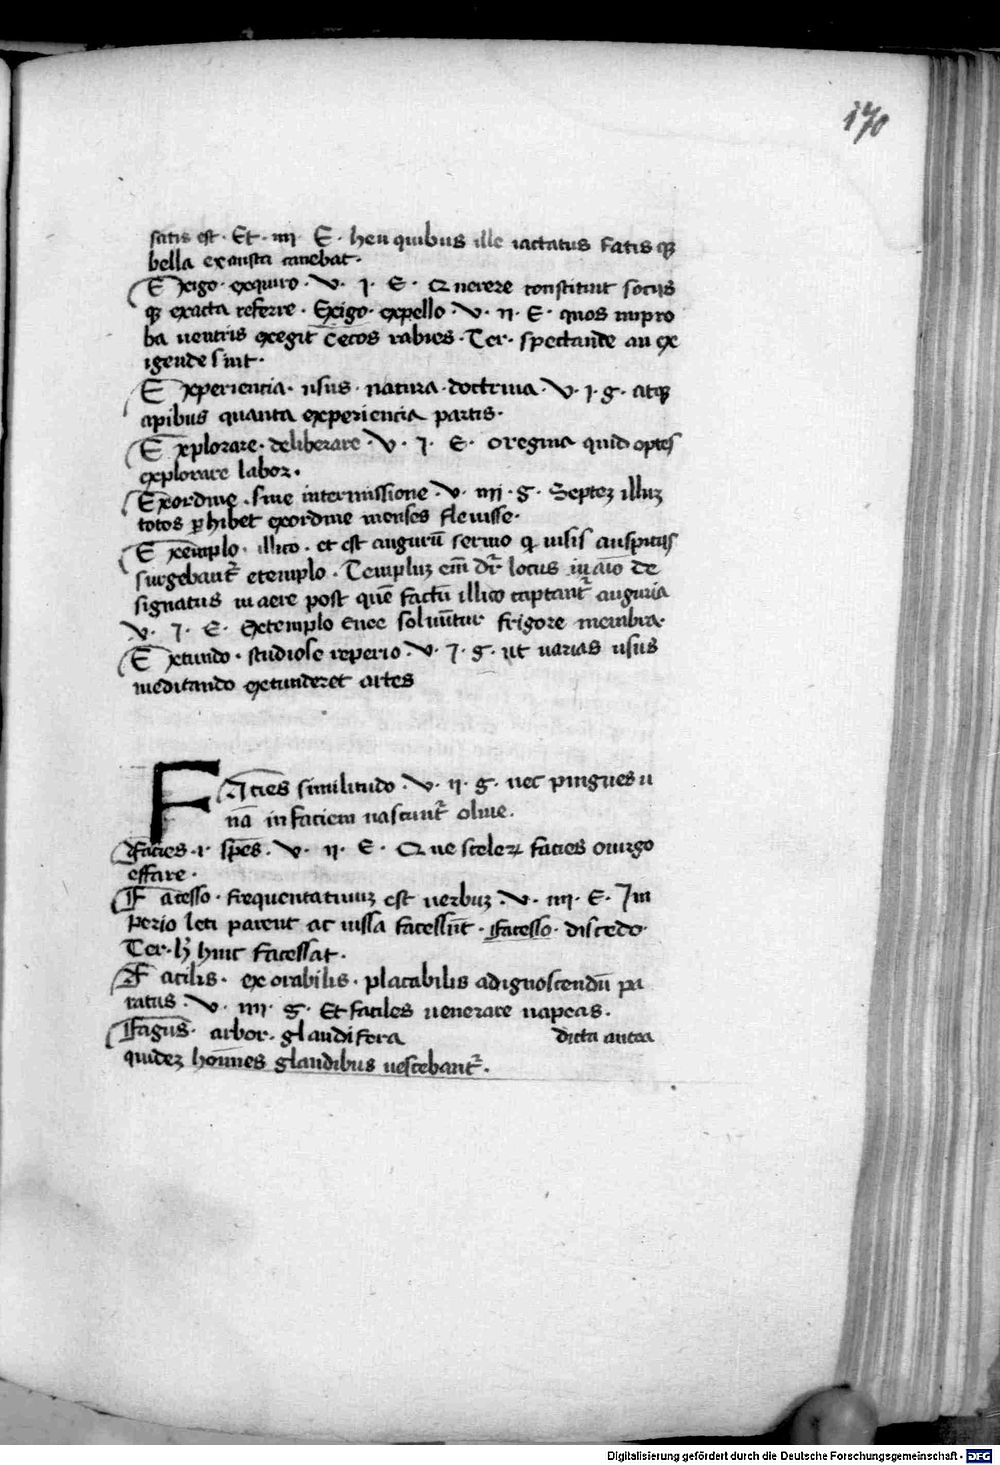 170
satis est · Et · iiii · E · heu quibus ille iactatus fatis que
bella exausta canebat ·
Exigo · exquiro · V · j · E · Querere constituit socijs
que exacta referre · Exigo · expello · V · ii · E · quos impro
ba uentris exegit cecos rabies · Ter · spectande an ex
igende sint ·
Experiencia · usus · natura · doctrina · V · j · g · atque
apibus quanta experiencia partis ·
Explorare · deliberare · V · j · E · o regina quid optes
explorare labor ·
Exordine · sine intermissione · V · iiii · g · Septez illuz
totos perhibet exordine menses fleuisse ·
Exemplo · illico · et est augurū sermo qui uisis auspicijs
surgebant̃ etemplo · Templuz em̄ dr̃ locus in aio de
signatus in aere post quē factū illico captant̃ auguria
V · j · E · Extemplo Enee soluūtur frigore membra ·
Extundo · studiose reperio · V · j · g · ut uarias usus
meditando extunderet artes
FAcies similitudo · V · ii · g · nec pingues u
nā in faciem nascunt̃ oliue ·
Facies · i · spēs · V · ii · E · Que sceleꝝ facies o uirgo
effare ·
Facesso · frequentatiuuz est uerbuz · V · iiii · E · Im
perio leti parent ac iussa facessūt · Facesso · discedo ·
Ter · hȝ hinc facessat ·
Facilis · exorabilis · placabilis adignoscendū pa
ratus · V · iiii · g · Et faciles uenerare napeas ·
Fagus · arbor · glandifera dicta antea
quidez hoīnes glandibus uescebant̃ ·
Digitalisierung gefördert durch die Deutsche Forschungsgemeinschaft - DFG